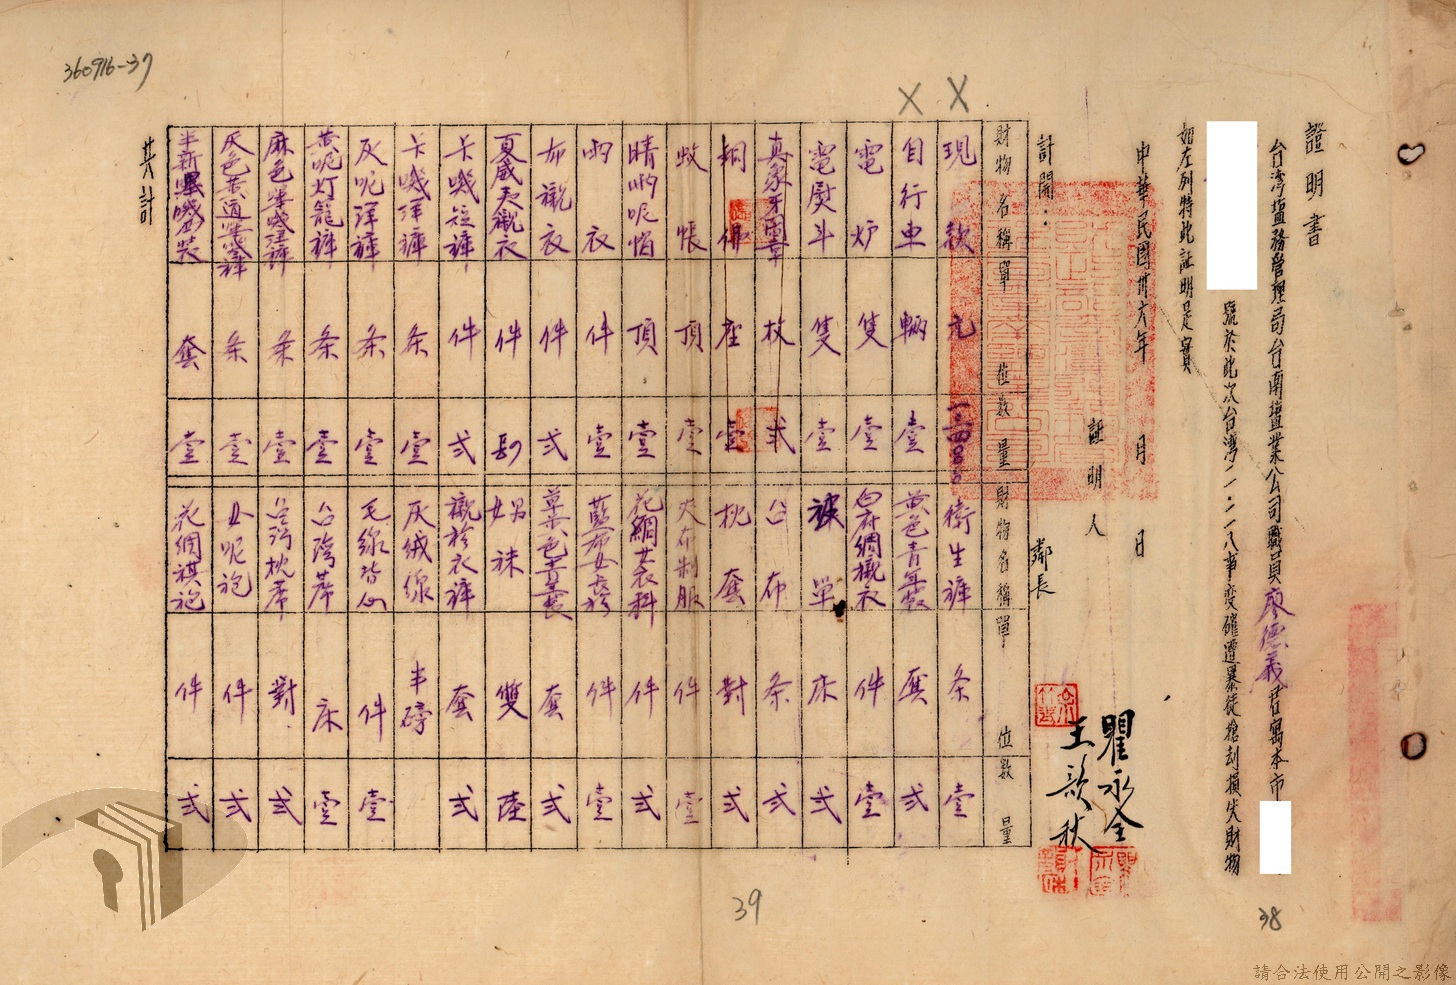 證明書
台湾塩務管理局台南塩業公司職員廖德義君寓本市
號於此次台湾二·二八事变確遭暴徒搶刮損失財物
如左列特此証明是實
中華民國卅六年 月 日
証明人
鄰長
瞿永全
王歆秋
計開：
財物名稱 單位 數量 財物名稱 單位 數量
現欵 元 衛生褲 条 壹
自行車 輛 壹 黄色青年裝 套 弍
電炉 隻 壹 白府綢襯衣 件 壹
電熨斗 隻 壹 被單 床 弍
真象牙圖章 枚 弍 台布 条 弍
銅佛 座 壹 枕套 對 弍
蚊帳 頂 壹 灰布制服 件 壹
晴雨呢帽 頂 壹 花綢女衣料 件 弍
雨衣 件 壹 藍布女長袍 件 壹
布襯衣 件 弍 套 弍
夏威夷襯衣 件 雙 陸
卡嘰短褲 件 弍 襯衫衣褲 套 弍
卡嘰洋褲 条 壹 灰絨線 半磅
灰呢洋褲 条 壹 毛線背心 件 壹
黄呢灯籠褲 条 壹 台灣蓆 床 壹
麻色嗶嘰洋褲 条 壹 台湾枕蓆 對 弍
灰色黄道嗶嘰洋褲 条 壹 女呢袍 件 弍
半新嗶嘰西裝 套 壹 花綢祺袍 件 弍
共計
360916-37
X X
39
38
請合法使用公開之影像